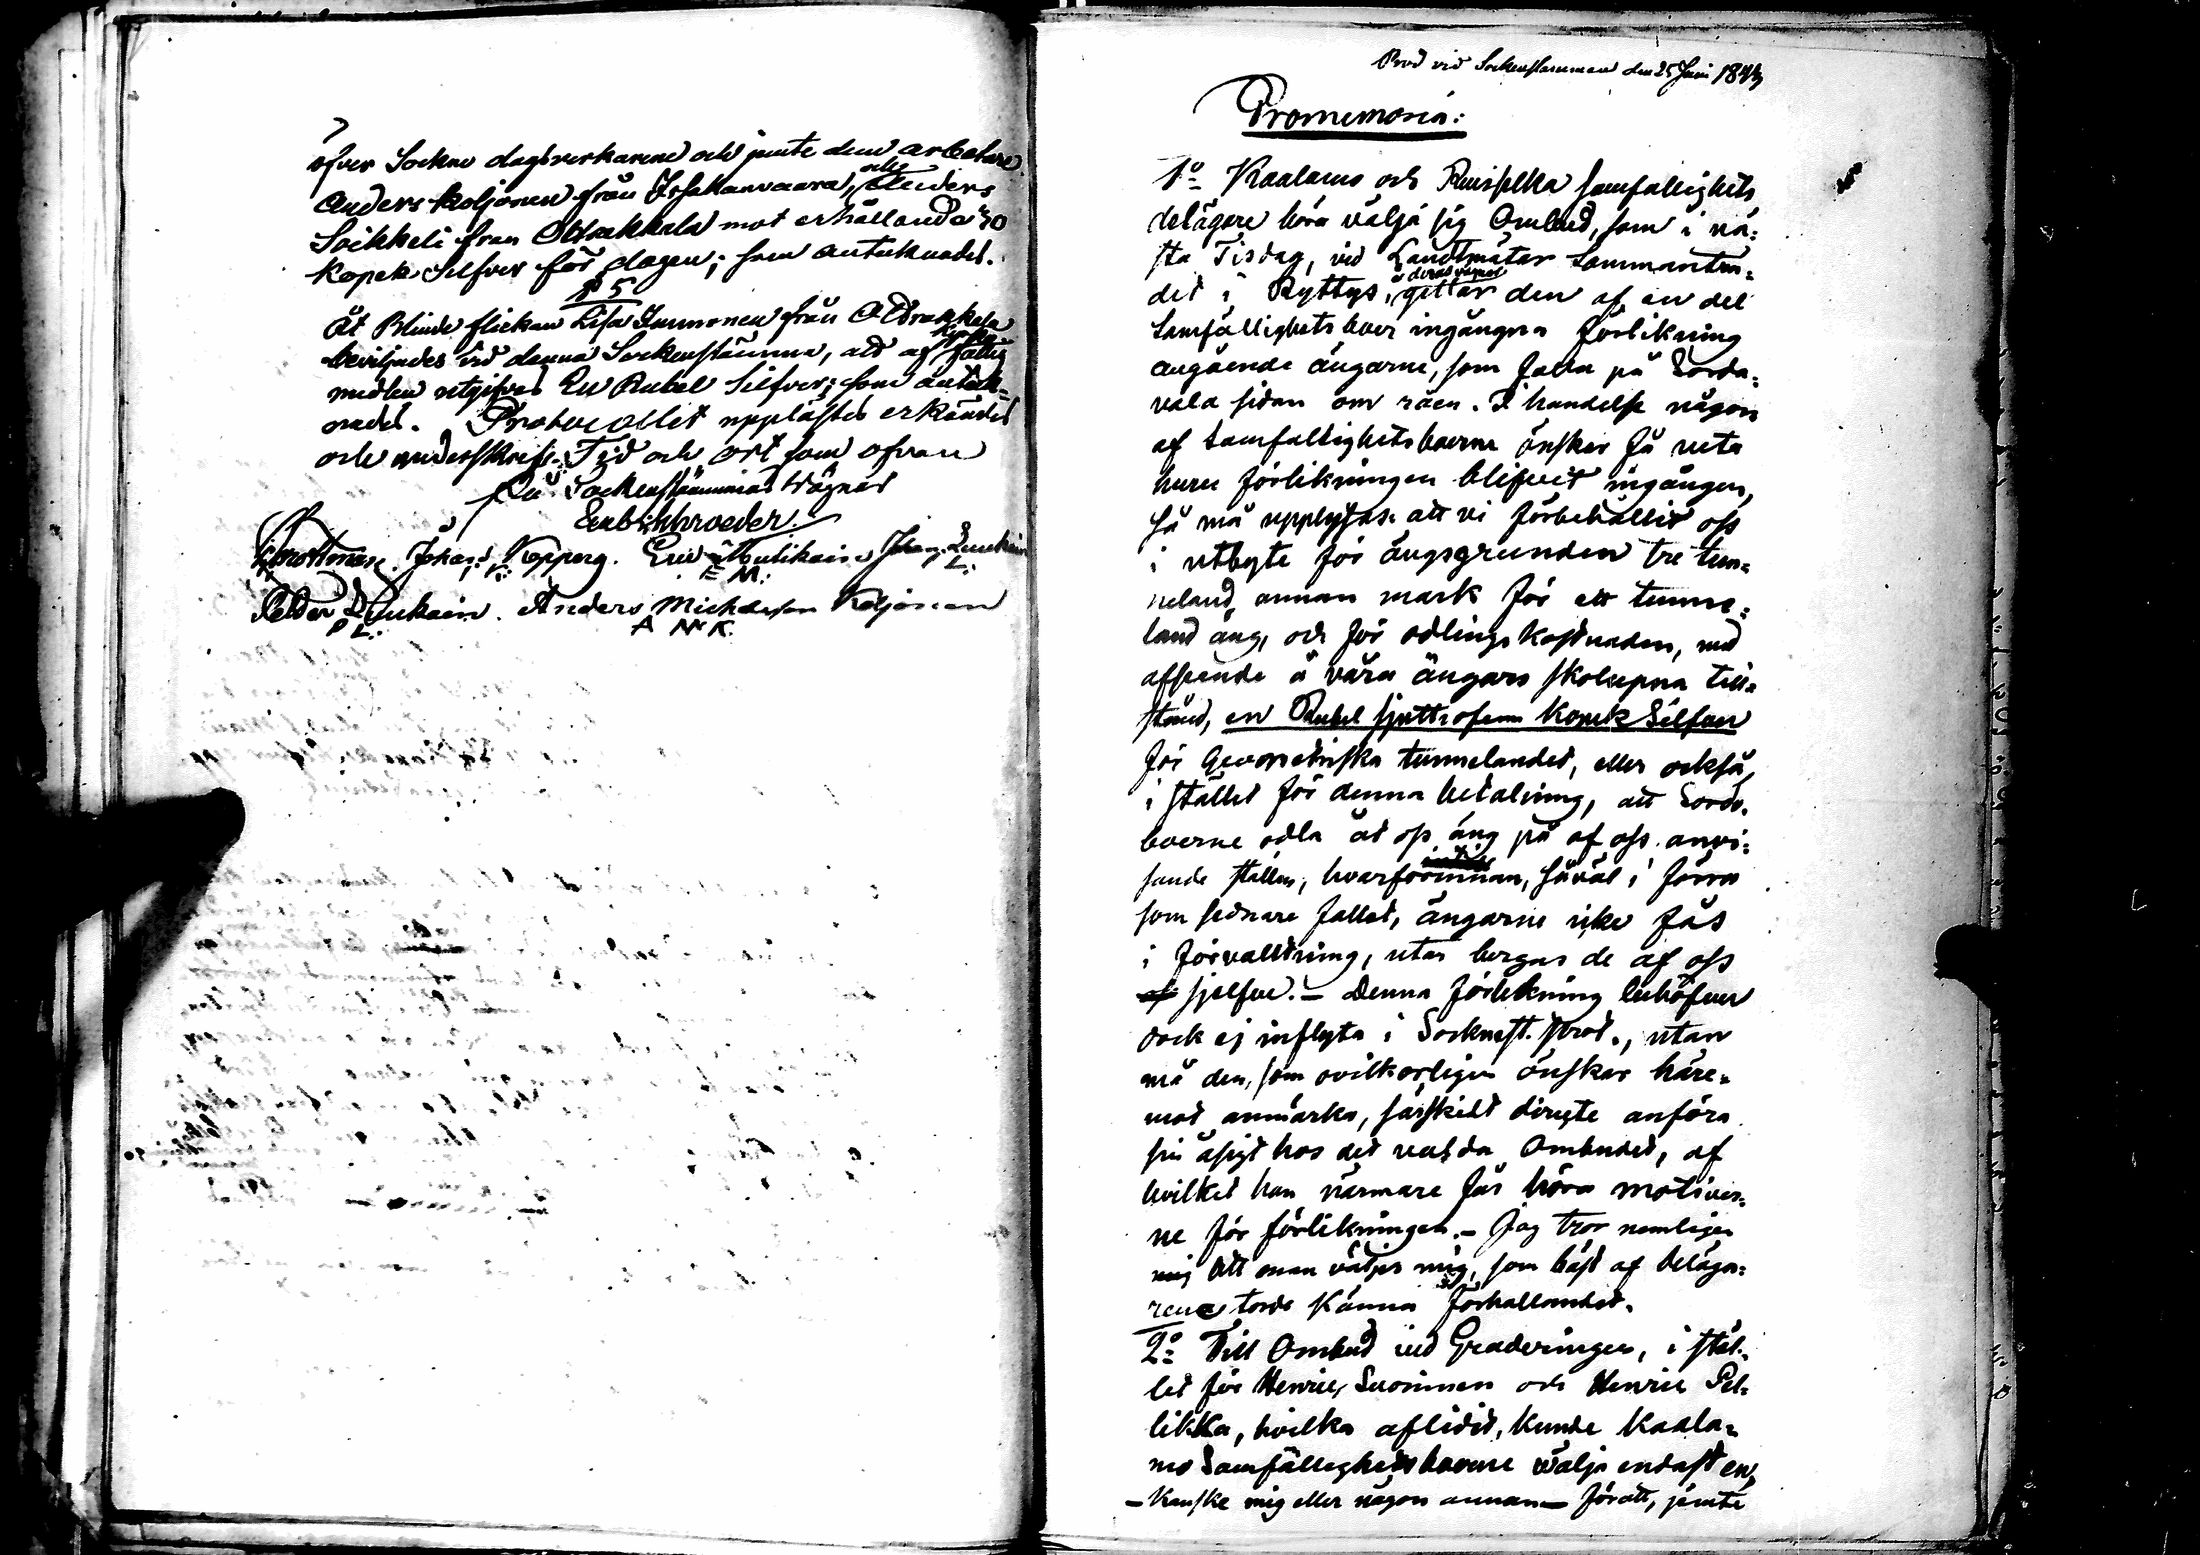 öfver Sockne dagsverkarene och jemte dem arbetare
Anders Koljonen från Ihakanvaara, och Anders
Soikkeli från Otrakkala mot erhållande 30
Kopek Silfver för dagen; som antecknades.
§ 5
Åt Blinde flickan Lisa Immonen från Otrakkala
beviljades vid denna Sockenstämma, att af Kyrko fattig
medlen utgifves En Rubel Silfver; som anteck=
nades. Protocollet upplästes erkändes
och underskrefs. Tid och ort som ofvan
På Sockenstämmans vägnar
Johan Kopperg. Eric Mutikain Johan Leukain
K: E M: L:
Petter Leukain. Anders Michelsson Koljonen
P L: A M K.
Prod vid Sockenstämman den 25 Juni 1843
Promemoria:
1o Kaalamo och Ruiselka samfällighets
delägare böra välja sig Ombud, som i nä=
sta Tisdag, vid Landtmätar Sammanträ=
det i Ryttys, å deras vägnar gillar den af en del
Samfällighetsboer ingångna förlikning
angående ängarne, som falla på Sorda=
vala sidan om råen. I händelse någon
af Samfällighetsboerne önskar få veta
huru förlikningen blifvit ingången,
så må upplysas att vi förbehållit oss
i utbyte för ängsgrunden tre tun=
neland annan mark för ett tunne=
land äng, och för odlings kostnaden, med
afseende å våra ängars skoleupna till=
stånd, en Rubel sjuttiofem Kopek Silfver
för Geometriska tunnelandet, eller också,
i stället för denna betalning, att Sorda=
boerne odla åt oss äng på af oss anvi=
sande ställen, hvarförinnan, såväl i förra
som sednare fallet, ängarne icke fås
i förvalltning, utan bergas de af oss
sjelfve. – Denna förlikning behöfver
dock ej inflyta i Socknest. Prot., utan
må den, som ovilkorligen önskar häre=
mot anmärka, särskildt directe anföra
sin åsigt hos det valda Ombudet, af
hvilket han närmare får höra motiver=
ne för förlikningen. – Jag tror nemligen
mig att man väljer mig, som bäst af deläga=
rene torde Känna förhållandet.
2o Till Ombud vid Graderingen, i stäl=
let för Henric Suominen och Henric Pel=
likka, hvilka aflidit, kunde Kaala=
mo Samfällighetsboerne välja endast en,
– Kanske mig eller någon annan – föratt, jemte